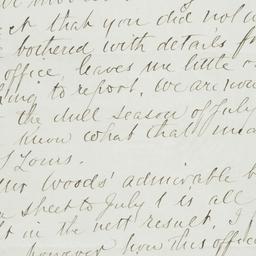 ct that you did not w
bothered with details fr
office, leaves me little o
ing to report. We are now
the dull season of July
Know what that mea
St Louis.
Mr Woods' admirable b
sheet to July 1 is all
in the nett result. I
however how this office